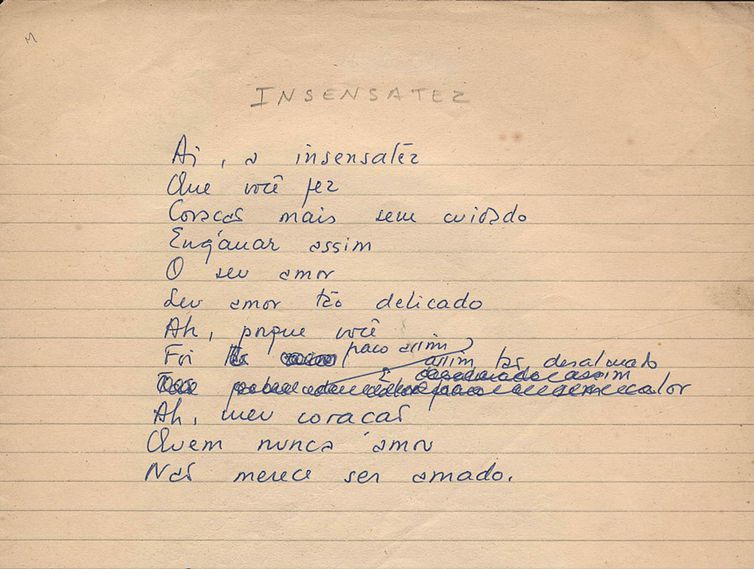 M
INSENSATEZ
Ai, a insensatêz
Que você fez
Coração mais sem cuidado
Enganar assim
O seu amor
Seu amor tão delicado
Ah, porque você
Foi fraco assim
assim tão desalmado
assim
Ah, meu coração
Quem nunca amou
Não merece ser amado.